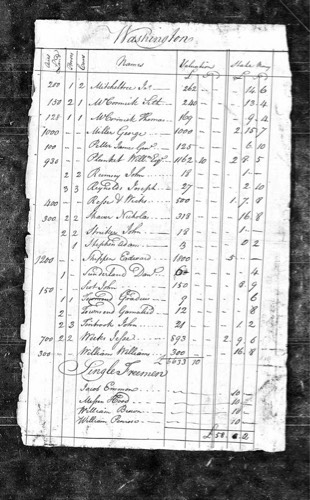 Washington
Acres Land Horses Cows Names Valuation State Money
200 1 2 Mitcheltree Jno 262 14 6
150 2 1 McCormick Seth 240 13 4
128 1 1 McCormick Thomas 169 9 4
1000 Miller George 1000 2 15 7
100 Petter James 125 6 10
930 Plunket Willm Esqr 1162 10 2 8 5
2 2 Rumsey John 18 1
3 3 Reynolds Joseph 27 2 10
400 Rosse & Weeks 500 1 7 8
300 2 2 Shaver Nicholas 318 16 8
2 2 Stritze John 18 1
1 Stephen Adam 3 0 2
1200 Shippen Edward 1800 5
1 Sunderland Danl 60 4
150 Scot John 150 8 9
1 1 Townsend 9 1 6
2 Townsend Gamaliel 12 8
2 3 Tinbrook John 21 1 2
700 2 2 Weeks Jesse 893 2 9 6
300 William Williams 300 16 8
£6633 10
Single Freemen
Jacob Emmons 10
Moses Hood 10
William Brown 10
William 10
£58 6 2